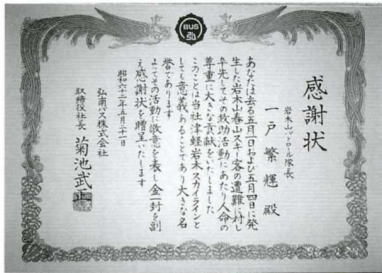 BUS
弘
感謝状
岩木山パトロール隊長
一戸繁輝殿
あなたは去る五月一日および五月四日に発
生した岩木山春山スキー客の遭難に対し
率先してその救助活動にあたり人命の
尊重に大きな貢献をいたしました
このことは当社津軽岩木スカイラインと
しても意義のあることであり大きな名
誉であります
よってその活動に敬意を表し金一封を副
え感謝状を贈呈いたします
昭和六十二年五月二十一日
弘南バス株式会社
取締役社長 菊池武正